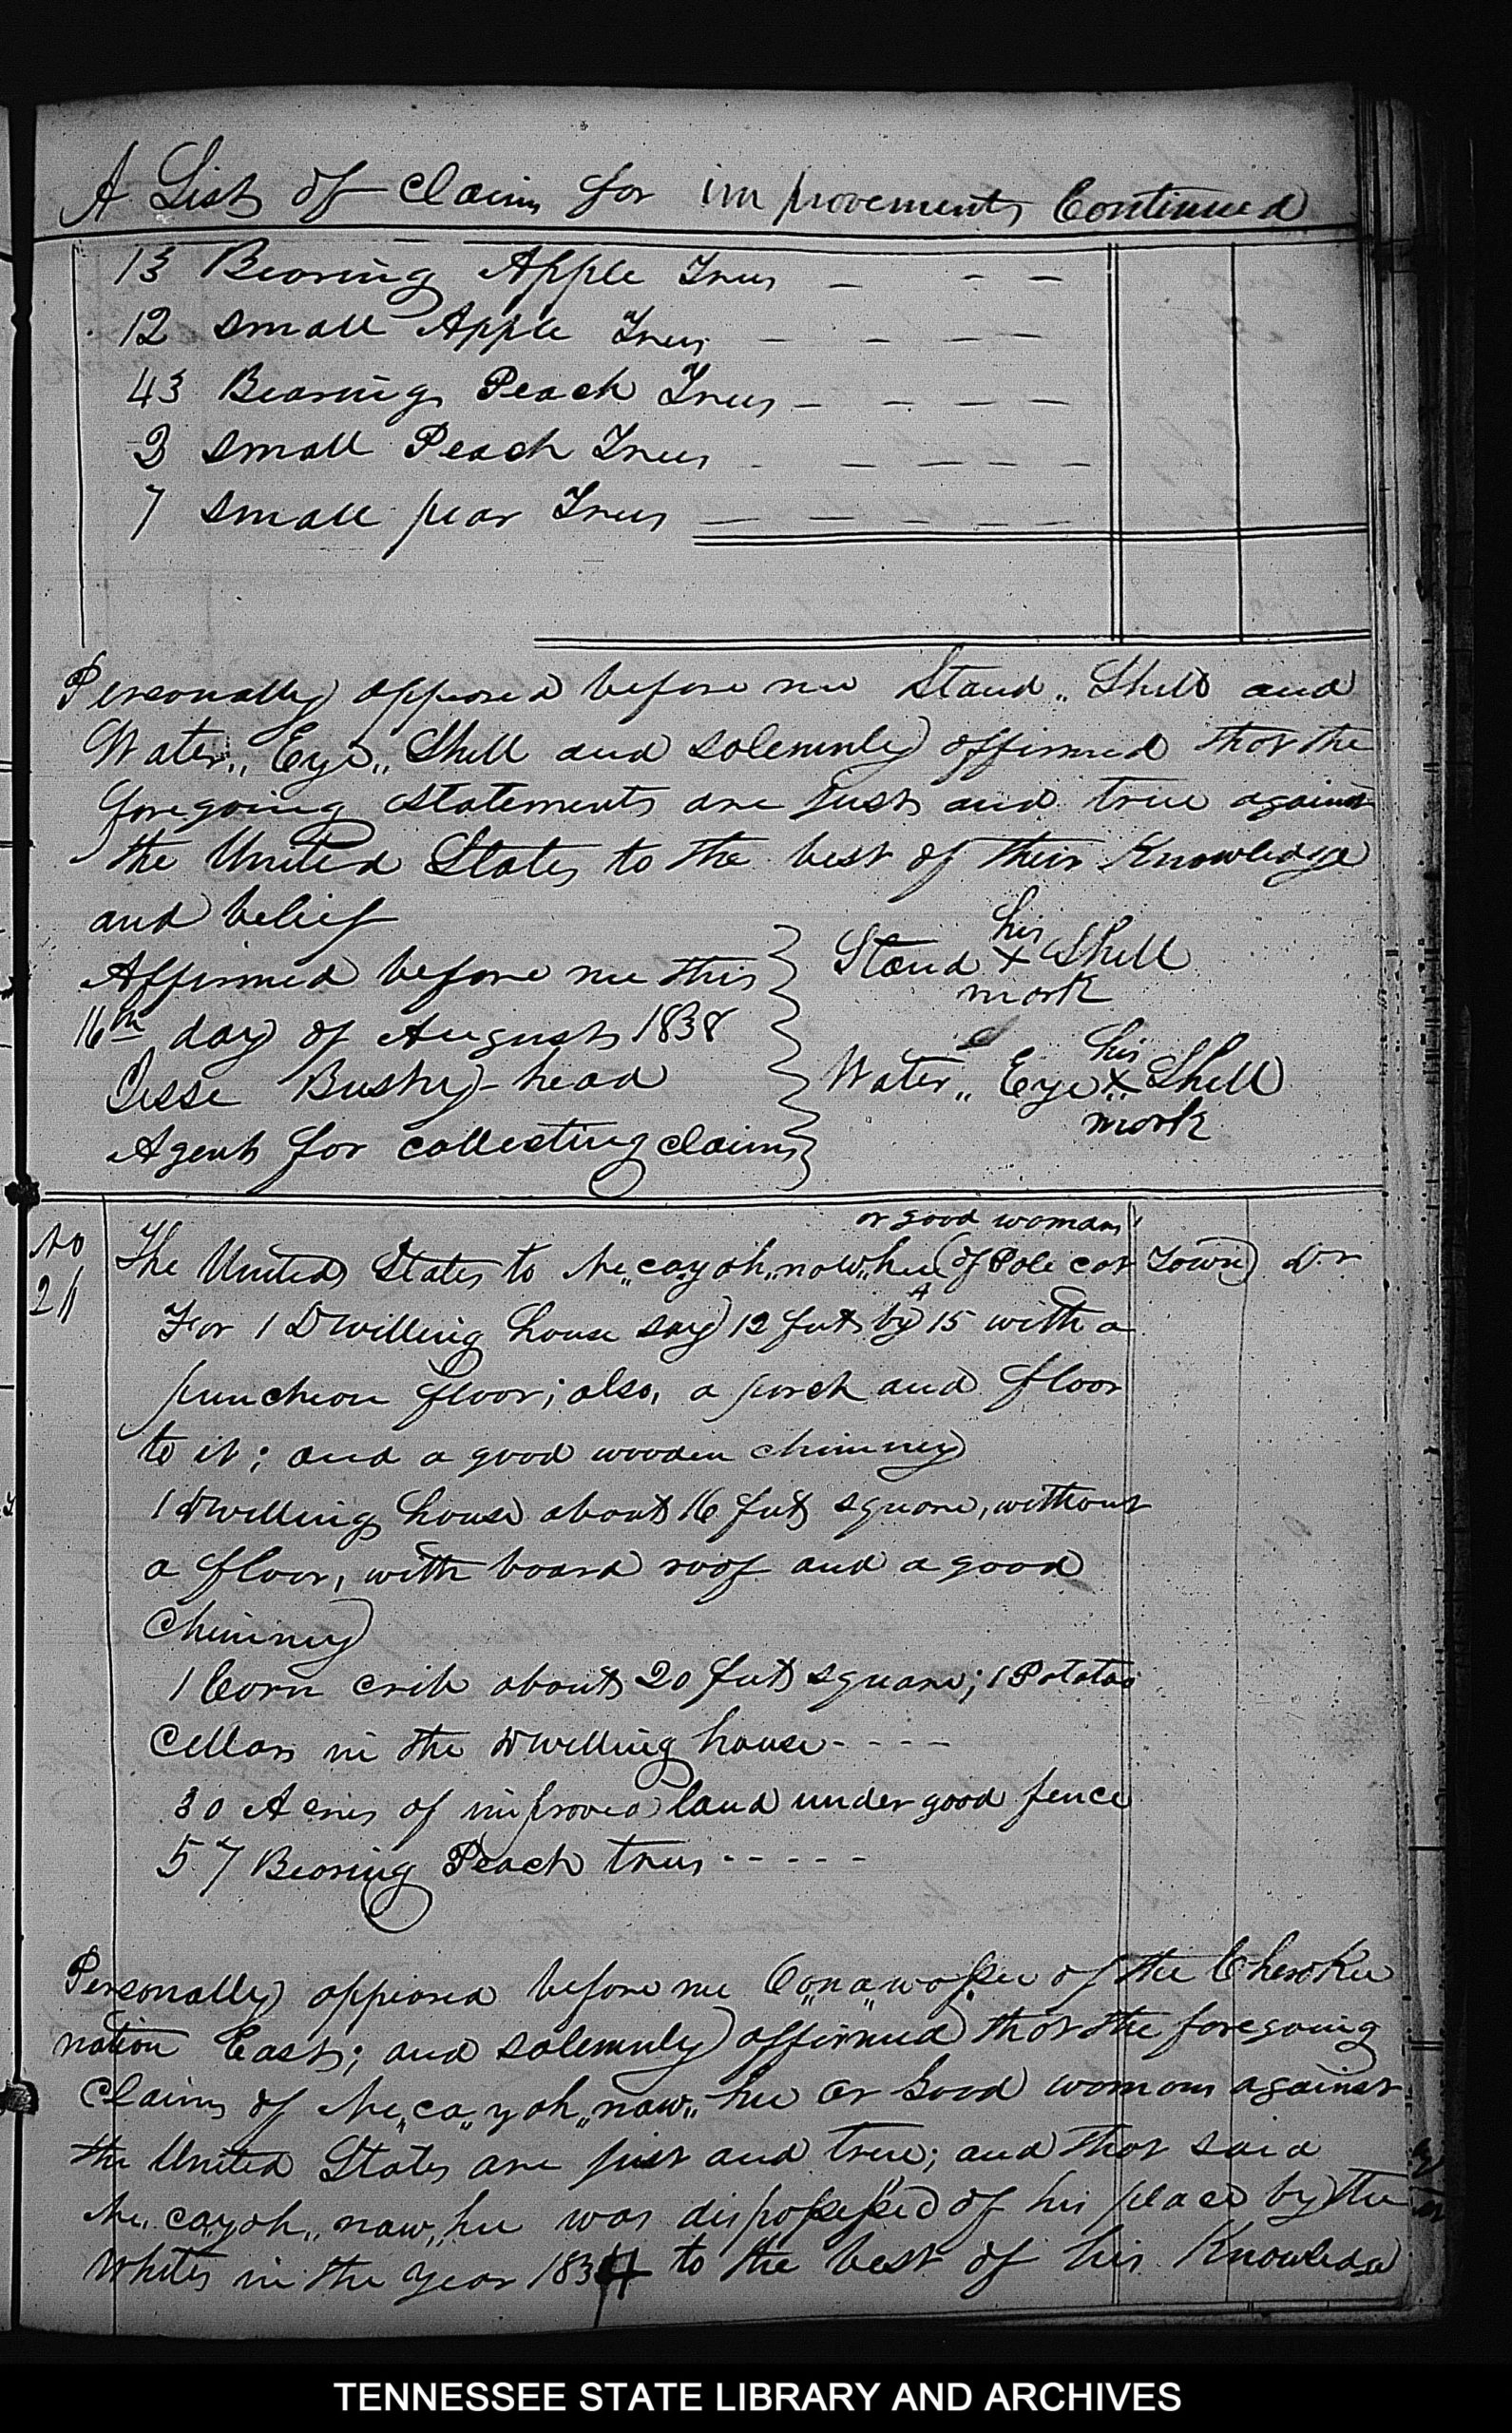 A List of Claims for improvements Continued
13 Bearing Apple Trees — — —
12 small Apple Trees — — — —
43 Bearing Peach Trees — — — —
3 small Peach Trees — — — — —
7 small pear Trees — — — — —
Personally appeared before me Stand „ Shell and
Water „ Eye „ Shell and solemnly affirmed that the
foregoing statements are just and true against
the United States to the best of their Knowledge
and belief
Affirmed before me this
16th day of August 1838
Jesse Bushy-head
Agent for collecting claims
his
Stand x Shell
mark
his
Water „ Eye „ x Shell
mark
No
21
or good woman
The United States to Ne„cayoh„now„hee (of Pole cat Town) Dr
For 1 Dwelling house say 12 feet by 15 with a
puncheon floor; also, a porch and floor
to it; and a good wooden chimney
1 Dwelling house about 16 feet square, without
a floor, with board roof and a good
Chimney
1 Corn crib about 20 feet square; 1 Potatoe
Cellar in the Dwelling house - - - -
30 Acres of improved land under good fence
57 Bearing Peach trees - - - - -
Personally appeared before me of the Cherokee
nation East; and solemnly affirmed that the foregoing
Claims of Ne„ca„yoh„naw„hee or Good woman against
the United States are just and true; and that said
Ne„cayoh„naw„hee was dispossessed of his place by the
Whites in the year 1834 to the best of his Knowledge
TENNESSEE STATE LIBRARY AND ARCHIVES